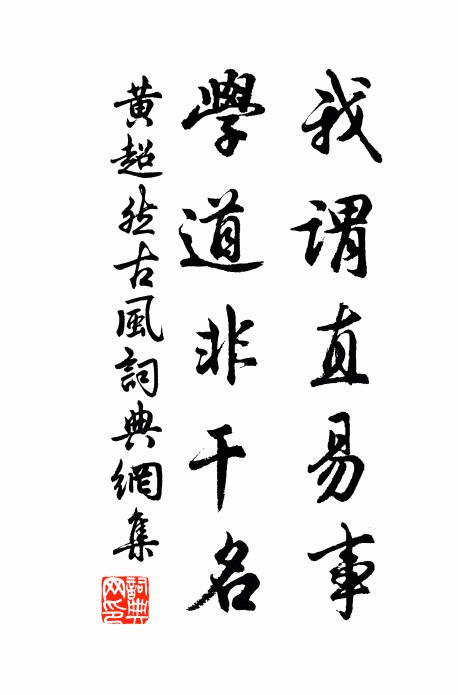 我謂直易事
學道非干名
黃超然古風詞典網集
詞典网印